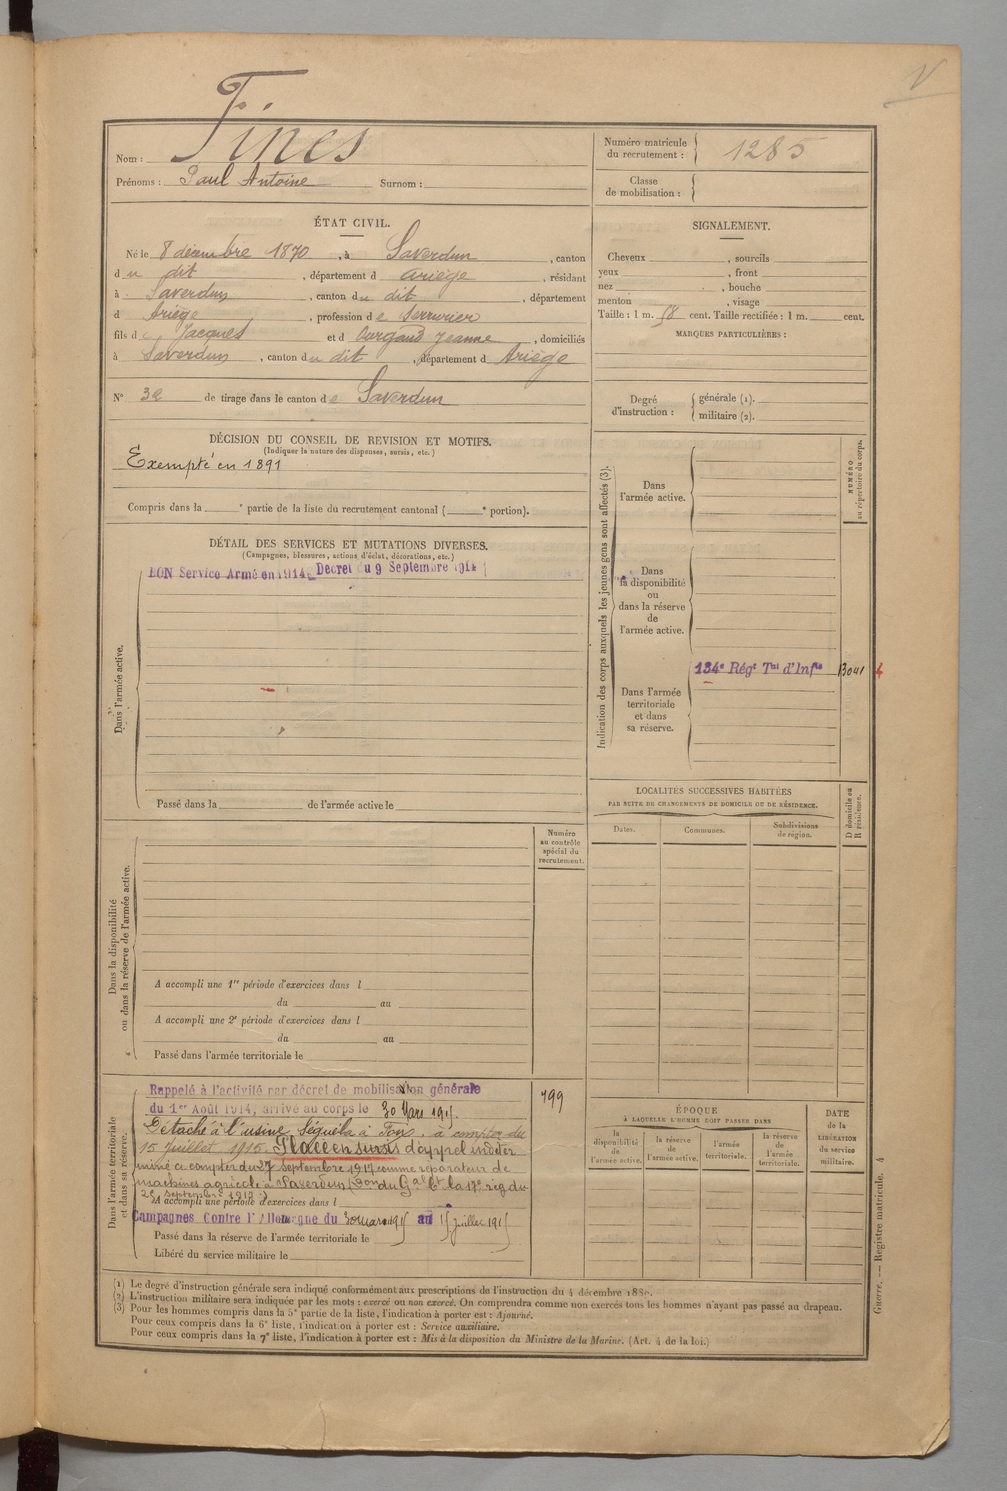 V
Nom : Fines
Prénoms : Paul Antoine Surnom :
Numéro matricule du recrutement : 1285
Classe de mobilisation :
ÉTAT CIVIL.
Né le 8 décembre 1870, à Saverdun, canton
du dit, département d Ariège, résidant
à Saverdun, canton du dit, département
d Ariège, profession de serrurier
fils de Jacques et d Jeanne, domiciliés
à Saverdun, canton du dit, département d Ariège
N° 32 de tirage dans le canton de Saverdun
SIGNALEMENT.
Cheveux, sourcils
yeux, front
nez, bouche
menton, visage
Taille : 1 m. 58 cent. Taille rectifiée : 1 m. cent.
MARQUES PARTICULIÈRES :
Degré d'instruction : générale (1).
militaire (2).
DÉCISION DU CONSEIL DE REVISION ET MOTIFS.
(Indiquer la nature des dispenses, sursis, etc.)
Exempté en 1891
Compris dans la e partie de la liste du recrutement cantonal ( e portion).
DÉTAIL DES SERVICES ET MUTATIONS DIVERSES.
(Campagnes, blessures, actions d'éclat, décorations, etc.)
Dans l'armée active.
BON Service Armé en 1914_ Décret du 9 Septembre 1914
Passé dans la de l'armée active le
Indication des corps auxquels les jeunes gens sont affectés (3).
NUMÉRO au répertoire du corps.
Dans l'armée active.
Dans la disponibilité ou dans la réserve de l'armée active.
Dans l'armée territoriale et dans sa réserve.
134e Régt Tal d'Infie 13041
LOCALITÉS SUCCESSIVES HABITÉES
PAR SUITE DE CHANGEMENTS DE DOMICILE OU DE RÉSIDENCE.
Dates. Communes. Subdivisions de région. D domicile ou R résidence.
Dans la disponibilité ou dans la réserve de l'armée active.
Numéro au contrôle spécial du recrutement.
A accompli une 1re période d'exercices dans l
du au
A accompli une 2e période d'exercices dans l
du au
Passé dans l'armée territoriale le
Dans l'armée territoriale et dans sa réserve.
799
Rappelé à l'activité par décret de mobilisation générale
du 1er Août 1914, arrivé au corps le 30 Mars 1915.
Détaché à l'usine Séguéla à Foix, à compter du
15 Juillet 1915. Placé en sursis d'appel indéter
miné à compter du 27 Septembre 1917 comme réparateur de
machines agricole à Saverdun (Don du Gal Ct la 17e rég du
25 septembre 1917)
A accompli une période d'exercices dans l
Campagnes Contre l'Allemagne du 30 mars 1915 au 15 juillet 1915
Passé dans la réserve de l'armée territoriale le
Libéré du service militaire le
ÉPOQUE
À LAQUELLE L'HOMME DOIT PASSER DANS
la disponibilité de l'armée active. la réserve de l'armée active. l'armée territoriale. la réserve de l'armée territoriale.
DATE de la LIBÉRATION du service militaire.
(1) Le degré d'instruction générale sera indiqué conformément aux prescriptions de l'instruction du 4 décembre 1889.
(2) L'instruction militaire sera indiquée par les mots : exercé ou non exercé. On comprendra comme non exercés tous les hommes n'ayant pas passé au drapeau.
(3) Pour les hommes compris dans la 5e partie de la liste, l'indication à porter est : Ajourné.
Pour ceux compris dans la 6e liste, l'indication à porter est : Service auxiliaire.
Pour ceux compris dans la 7e liste, l'indication à porter est : Mis à la disposition du Ministre de la Marine. (Art. 4 de la loi.)
Guerre. — Registre matricule. 4